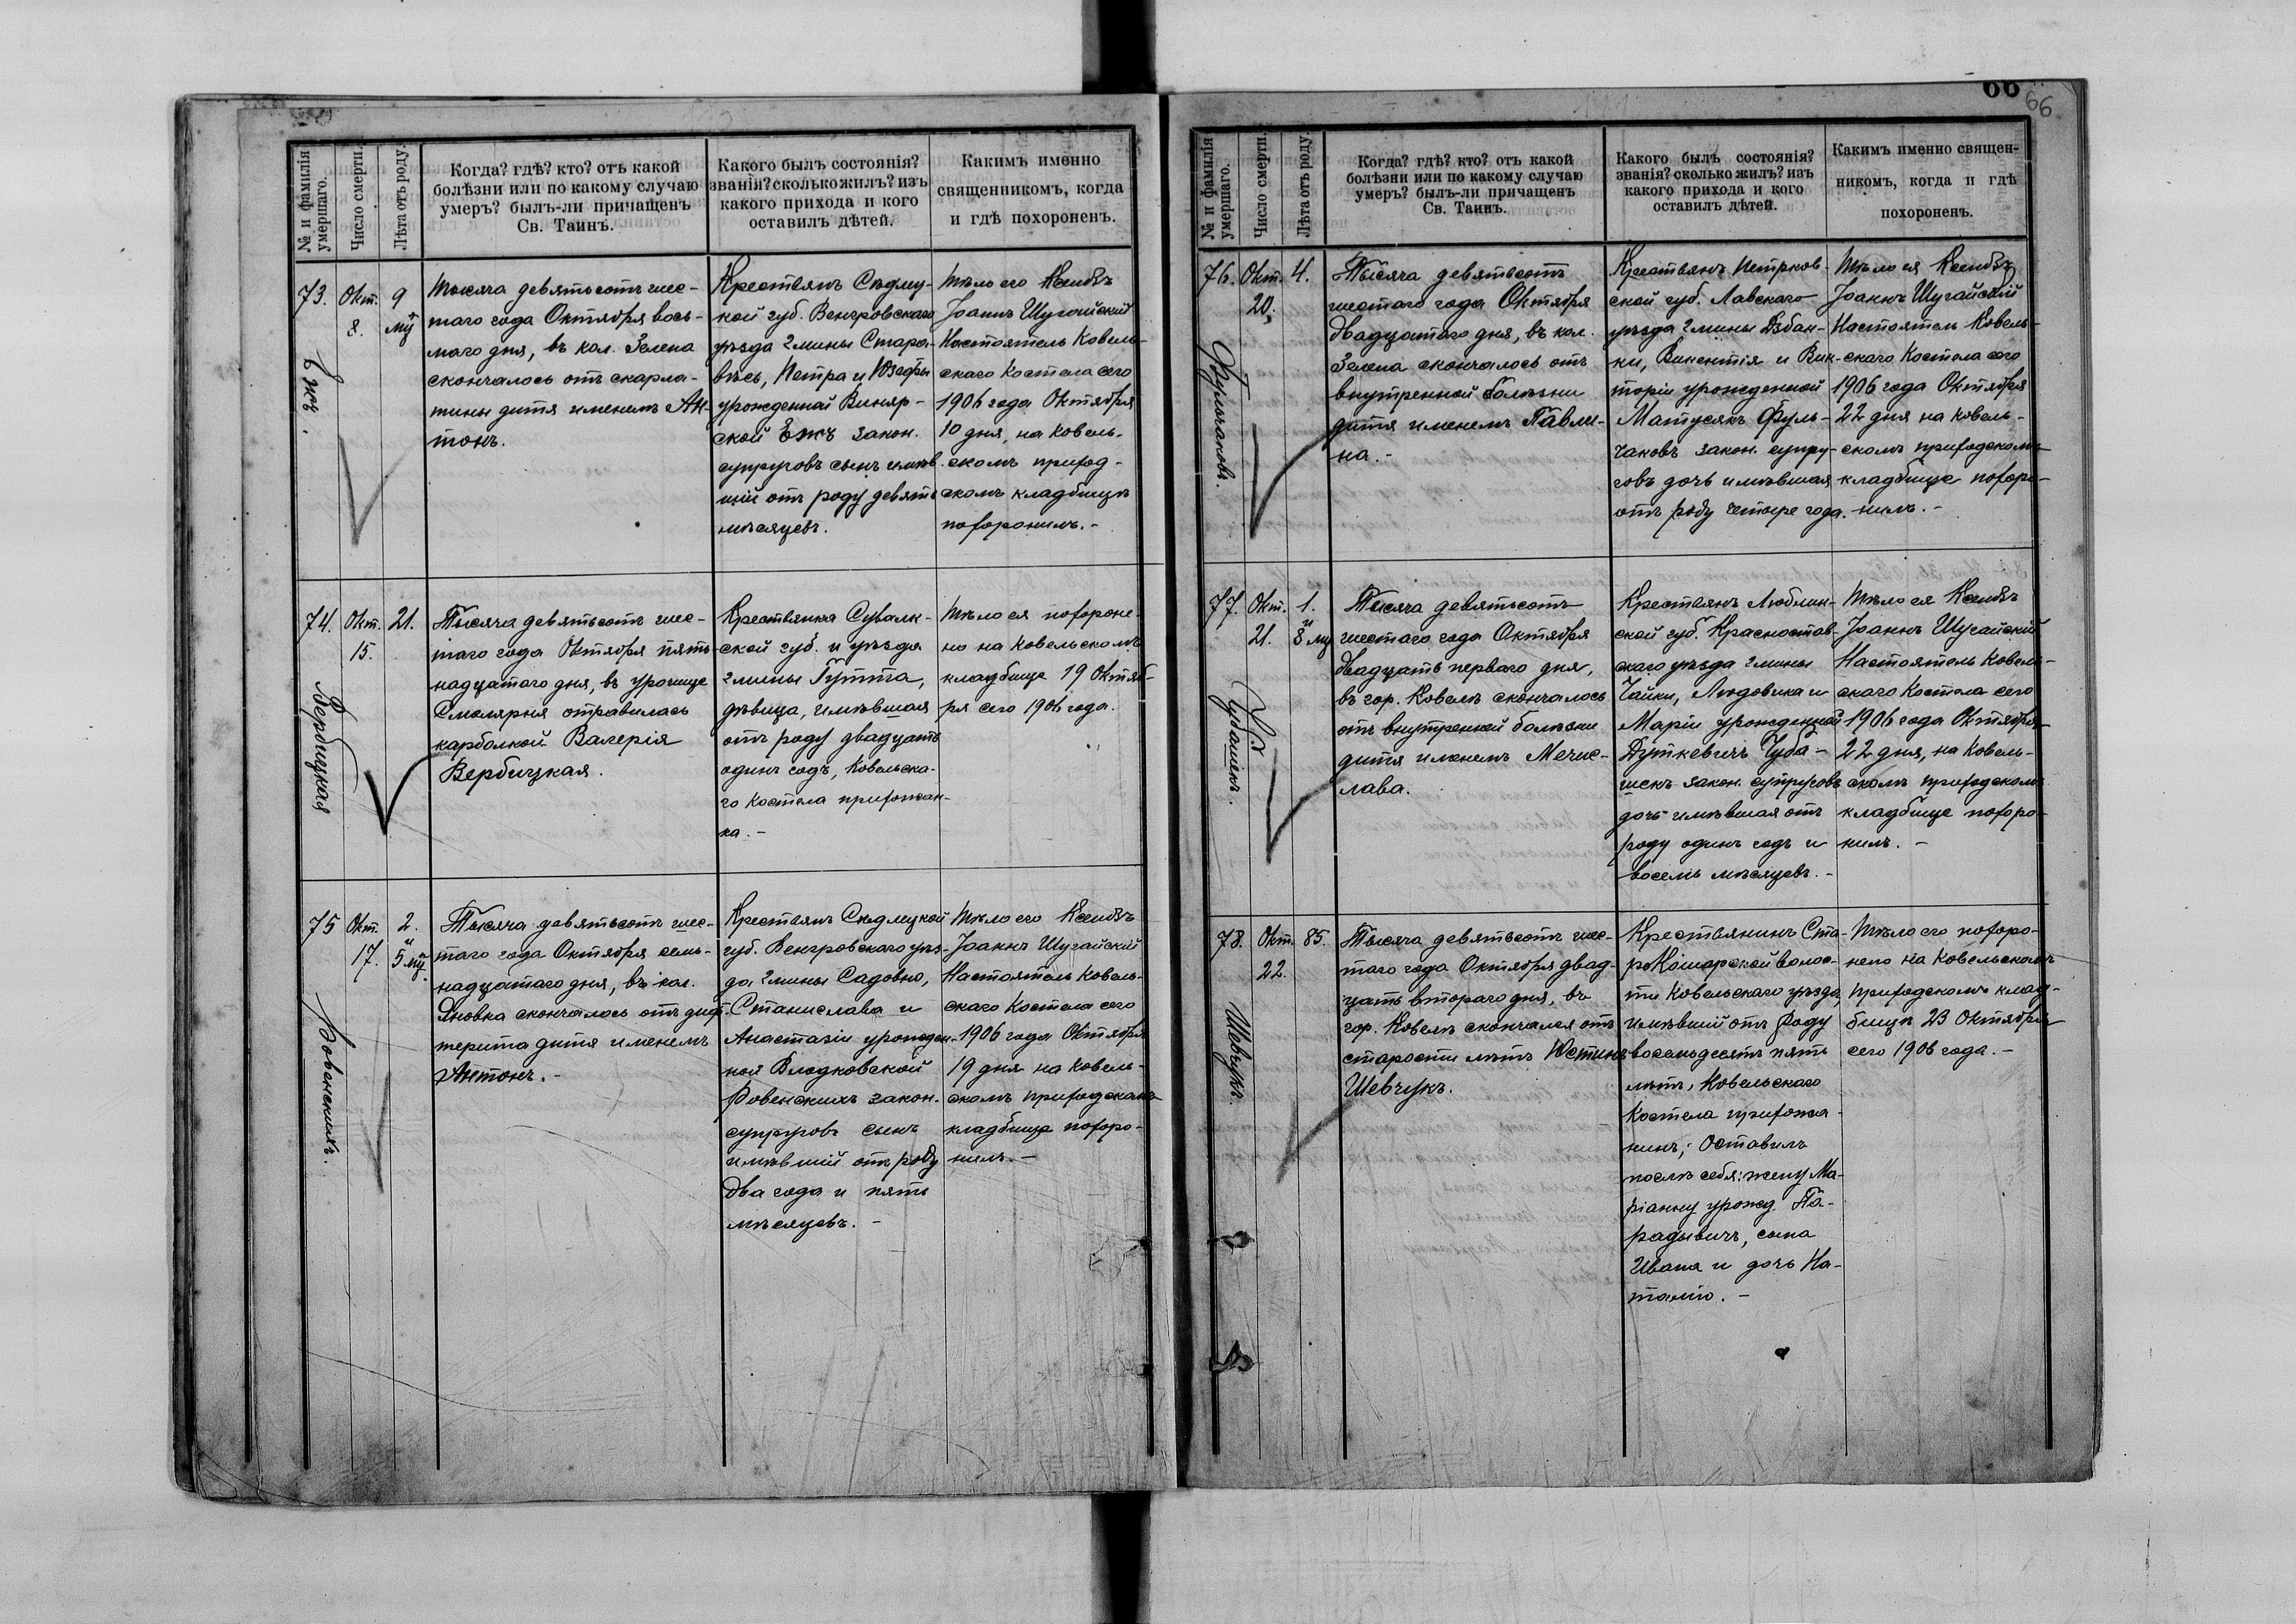 66
66
№ и фамилія умершаго.
Число смерти.
Лѣта отъ роду.
Когда? гдѣ? кто? отъ какой
болѣзни или по какому случаю
умеръ? былъ-ли причащенъ
Св. Таинъ.
Какого былъ состоянія?
званія? сколько жилъ? изъ
какого прихода и кого
оставилъ дѣтей.
Какимъ именно
священникомъ, когда
и гдѣ похороненъ.
73.
Окт.
8.
9
мц
Ежъ.
Тысяча девятьсотъ шес-
таго года Октября вось-
маго дня, въ кол. Зелена
скончалось отъ скарла-
тины дитя именемъ Ан-
тонъ.
Крестьянъ Сѣдлец-
кой губ. Венгровскаго
уѣзда гмины Стара-
вѣсь, Петра и Юзефы
урожденной Виняр-
ской Ежъ закон.
супруговъ сынъ имѣв-
шій отъ роду девять
мѣсяцевъ.
Тѣло его Ксендзъ
Іоаннъ Шугайскій
Настоятель Ковель-
скаго Костела сего
1906 года Октября
10 дня, на Ковель-
скомъ приход-
скомъ кладбищѣ
похоронилъ.-
74.
Окт.
15.
21.
Вербицкая
Тысяча девятьсотъ шес-
таго года Октября пят-
надцатаго дня, въ урочище
Смолярня отравилась
карболкой Валерія
Вербицкая.
Крестьянка Сувалк-
ской губ. и уѣзда
гмины Гутта,
дѣвица, имѣвшая
отъ роду двадцать
одинъ годъ, Ковельска-
го Костела прихожан-
ка.-
Тѣло ея похороне-
но на Ковельскомъ
кладбище 19 Октяб-
ря сего 1906 года.
75
Окт.
17.
2.
и
5 мц.
Ровенскихъ.
Тысяча девятьсотъ шес-
таго года Октября сем-
надцатаго дня, въ кол.
Яновка скончалось отъ диф-
терита дитя именемъ
Антонъ.-
Крестьянъ Сѣдлецкой
губ. Венгровскаго уѣз-
да, гмины Садовно,
Станислава и
Анастазіи урожден-
ной Влодковской
Ровенскихъ закон.
супруговъ сынъ
имѣвшій отъ роду
два года и пять
мѣсяцевъ.-
Тѣло его Ксендзъ
Іоаннъ Шугайскій
Настоятель Ковель-
скаго Костела сего
1906 года Октября
19 дня на Ковель-
скомъ приходскомъ
кладбище похоро-
нилъ.-
№ и фамилія умершаго.
Число смерти.
Лѣта отъ роду.
Когда? гдѣ? кто? отъ какой
болѣзни или по какому случаю
умеръ? былъ-ли причащенъ
Св. Таинъ.
Какого былъ состоянія?
званія? сколько жилъ? изъ
какого прихода и кого
оставилъ дѣтей.
Какимъ именно священ-
никомъ, когда и гдѣ
похороненъ.
76.
Окт.
20.
4.
Фульчаковъ.
Тысяча девятьсотъ
шестаго года Октября
двадцатаго дня, въ кол.
Зелена скончалось отъ
внутренной болѣзни
дитя именемъ Павли-
на.-
Крестьянъ Петрков-
ской губ. Лавскаго
уѣзда гмины Дзбан-
ки, Викентія и Вик-
торіи урожденной
Матусякъ Фуль-
чаковъ закон. супру-
говъ дочь имѣвшая
отъ роду четыре года.
Тѣло ея Ксендзъ
Іоаннъ Шугайскій
Настоятель Ковель-
скаго Костела сего
1906 года Октября
22 дня на Ковель-
скомъ приходскомъ
кладбище похоро-
нилъ.-
77.
Окт.
21.
1.
и
8 мц
Чубашекъ.
Тысяча девятьсотъ
шестаго года Октября
двадцать перваго дня,
въ гор. Ковелѣ скончалось
отъ внутренной болѣзни
дитя именемъ Мечис-
лава.
Крестьянъ Люблин-
ской губ. Красностав-
скаго уѣзда гмины
Чайки, Людовика и
Маріи урожденной
Дуткевичъ Чуба-
шекъ закон. супруговъ
дочь имѣвшая отъ
роду одинъ годъ и
восемь мѣсяцевъ.-
Тѣло ея Ксендзъ
Іоаннъ Шугайскій
Настоятель Ковель-
скаго Костела сего
1906 года Октября
22 дня, на Ковель-
скомъ приходскомъ
кладбище похоро-
нилъ.-
78.
Окт.
22.
85.
Шевчукъ.
Тысяча девятьсотъ шес-
таго года Октября двад-
цать втораго дня, въ
гор. Ковелѣ скончался отъ
старости лѣтъ Юстинъ
Шевчукъ.
Крестьянинъ Ста-
роКошарской волос-
ти Ковельскаго уѣзда,
имѣвшій отъ роду
восемьдесятъ пять
лѣтъ, Ковельскаго
Костела прихожа-
нинъ; Оставилъ
послѣ себя: жену Ма-
ріанну урожд. Па-
радывичъ, сына
Ивана и дочь На-
талію.-
Тѣло его похоро-
нено на Ковельскомъ
приходскомъ клад-
бищѣ 23 Октября
сего 1906 года.-